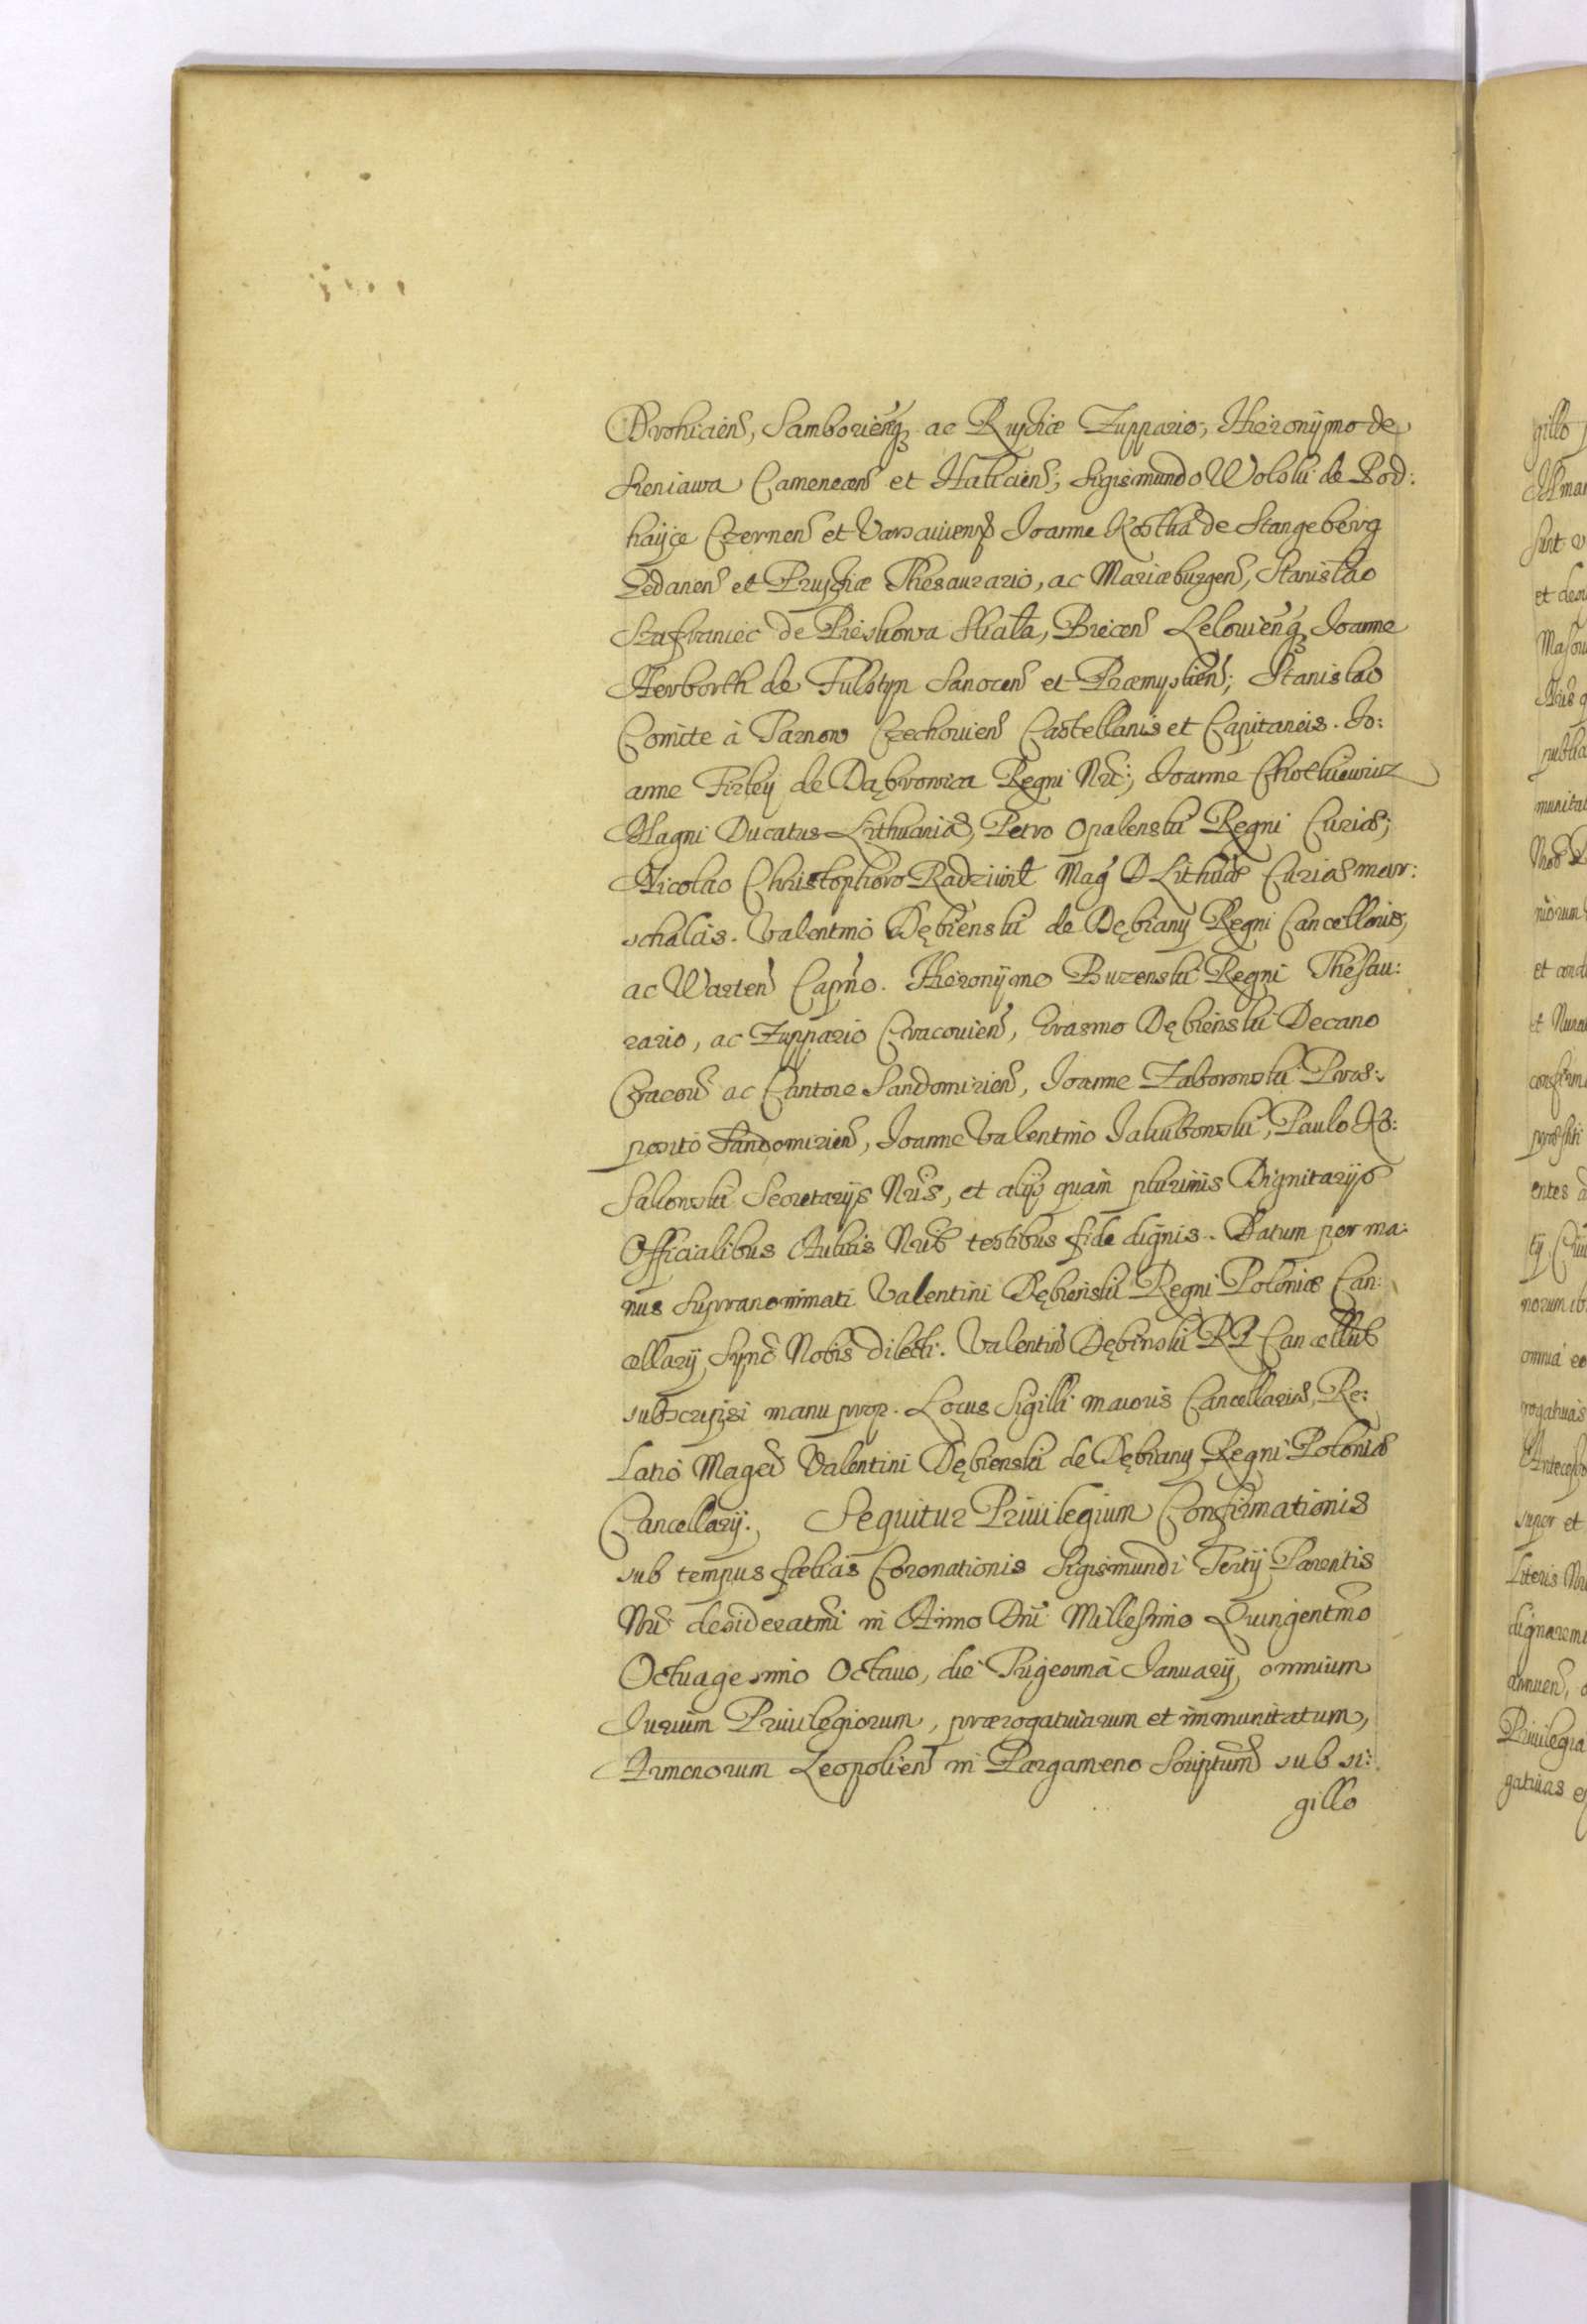 Drohicień, Samborieńq3 ac Rußiæ Zuppario, Hieronÿmo de
Sieniawa Cameneceń et Halicień; Sigismundo Wolski de Pod:
hayce Czerneń et Varsavień Joanne Kostka de Stangeberg
Gedaneń et Prußiæ Thesaurario, ac Mariæburgeń, Stanislao
Szafraniec de Pieskowa Skała, Bieceń Lelovieńq3 Joanne
Herborth de Fulstyn Sanoceń et Præmyslień; Stanislao
Comite à Tarnow Czechovień Castellanis et Capitaneis. Jo:
anne Firley de Dąbrowica Regni Nri; Joanne Chotkiewicz
Magni Ducatus Lithuaniæ, Petro Opalenski Regni Curiæ;
Nicolao Christophoro Radziwił Mag D Lithuæ Curiæ mar:
schalcis. Valentino Dębienski de Dębiany Regni Cancellario,
ac Warteń Capno. Hieronÿmo Buzenski Regni Thesau:
rario, ac Zuppario Cracovień, Erasmo Dębienski Decano
Cracoū ac Cantore Sandomirień, Joanne Zaborowski Præ:
posito Sandomirień, Joanne Valentino Jakubowski, Paulo Ko:
Sakowski Secretarÿs Nris, et alÿs quam plurimis Dignitarÿs
Officialibus Aulicis Nris testibus fide dignis. Datum per ma:
nus Supranominati Valentini Dębienski Regni Poloniæ Can:
cellarÿ Sync Nobis dilecti. Valentin Dębinski RP Cancellus
subscripsi manu prop. Locus Sigilli maioris Cancellariæ, Re:
latio Magci Valentini Dębienski de Dębiany Regni Poloniæ
Cancellarÿ. Sequitur Privilegium Confirmationis
sub tempus fælicis Coronationis Sigismundi Tertÿ Parentis
Nri desideratmi in Anno Dni Millesimo Quingentmo
Octuagesimo Octavo, die Trigesima Januarÿ, omnium
Jurium Privilegiorum, prærogativarum et immunitatum,
Armenorum Leopolień in Pargameno Scriptum sub si:
gillo